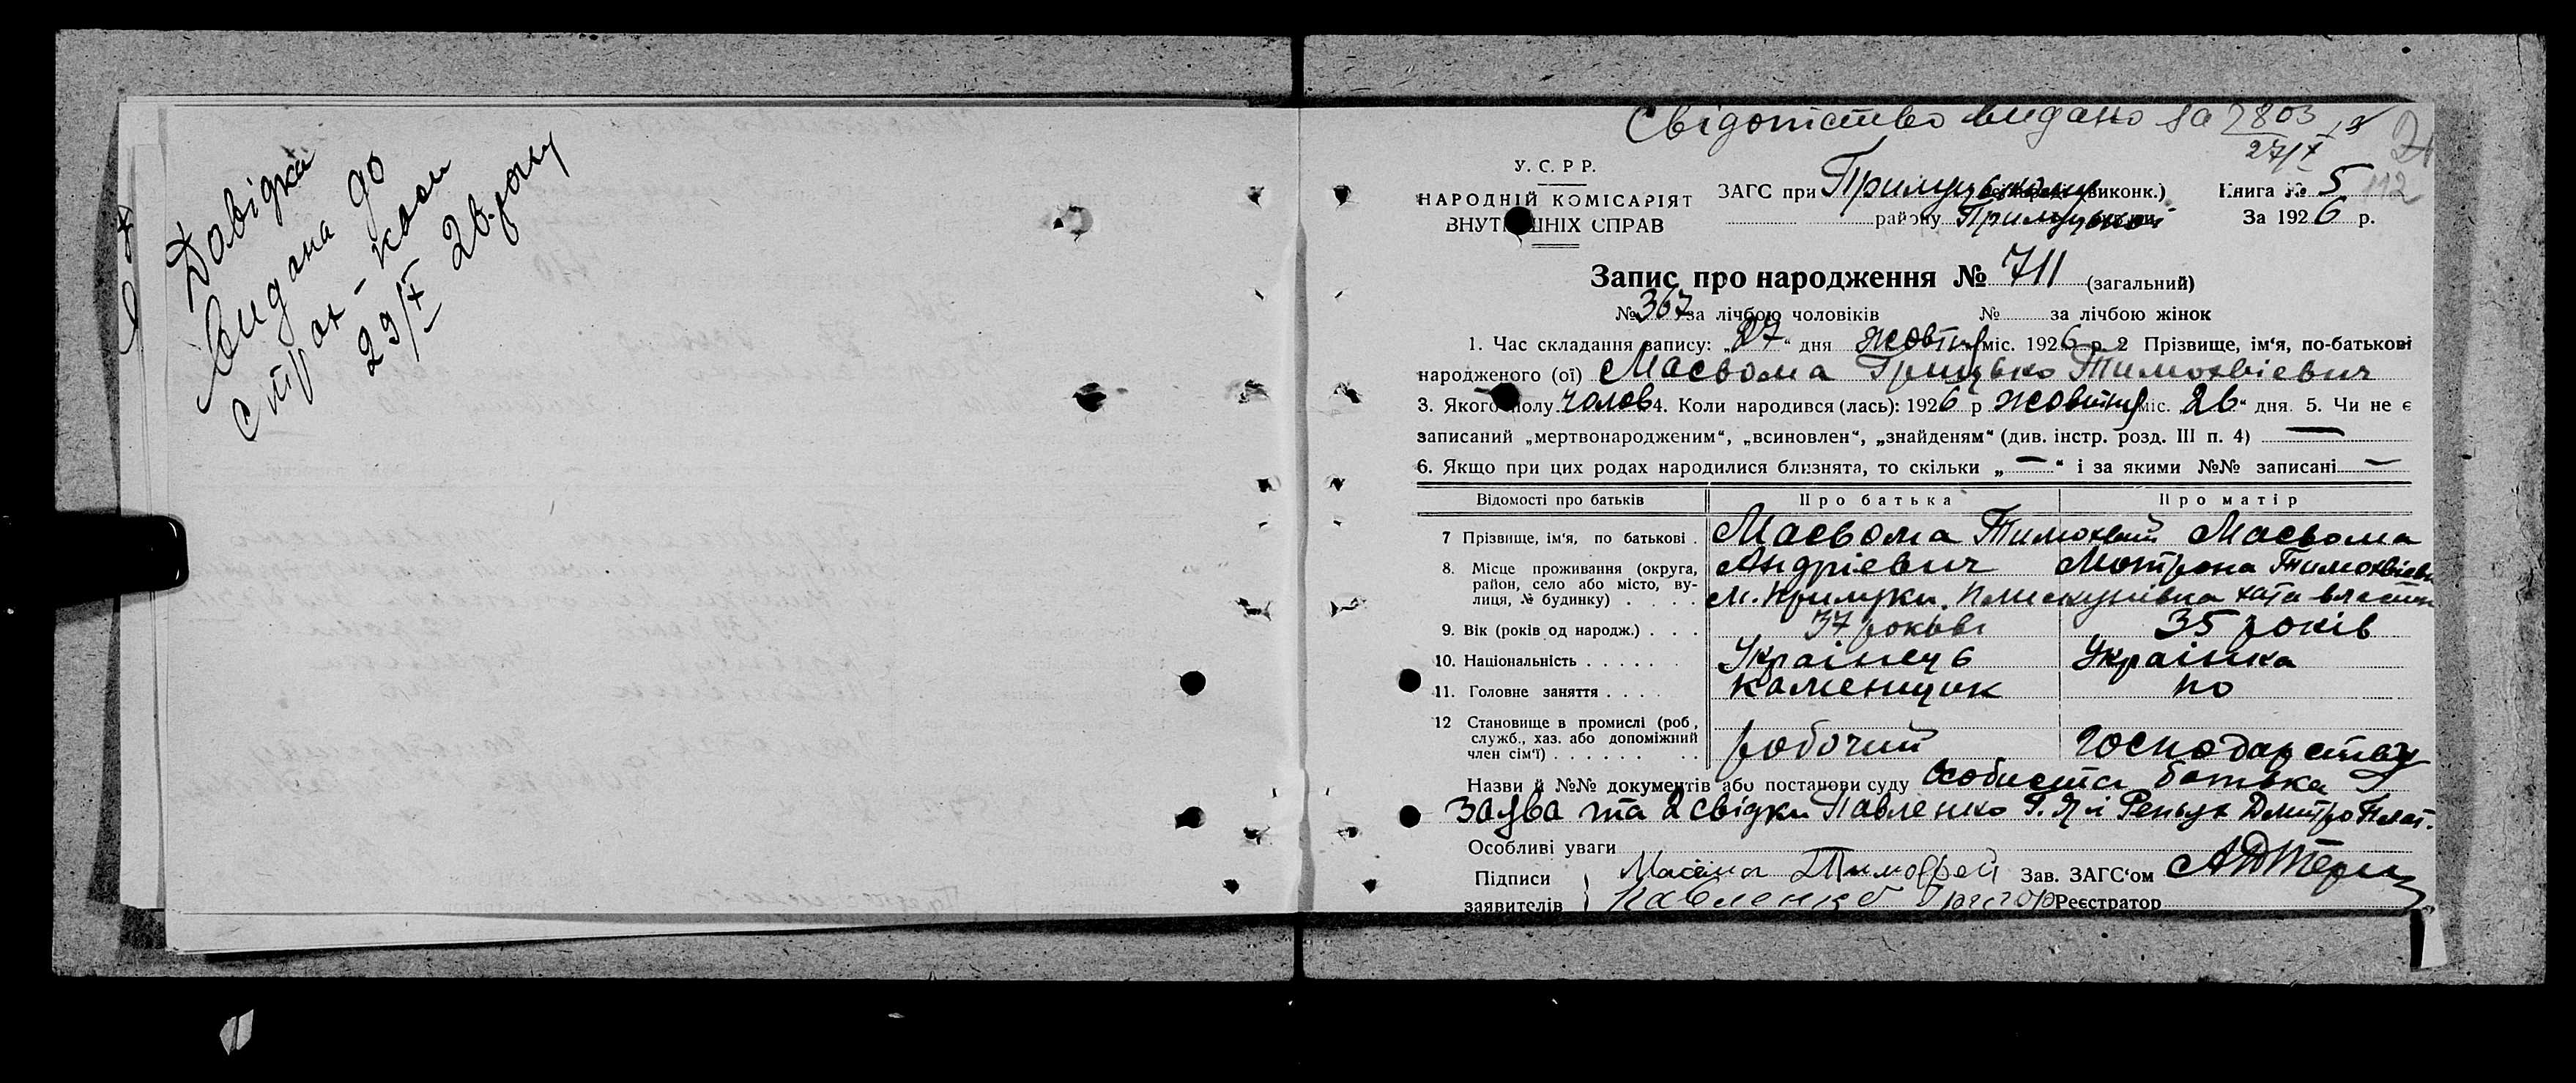 Довідка
видана до
страх-каси
29/X 26 року
Свідотство видано за 2803
27/X
У. С. Р. Р.
НАРОДНІЙ КОМІСАРІЯТ
ВНУТРІШНІХ СПРАВ
ЗАГС при Прилуцькому виконк.)
району Прилуцької
Книга № 5 112
За 1926 р.
Запис про народження № 711 (загальний)
№ 367 за лічбою чоловіків № за лічбою жінок
1. Час складання запису: „27“ дня жовтня міс. 1926 р. 2 Прізвище, ім‘я, по-батькові
народженого (ої) Масвома Грицько Тимохвієвич
3. Якого полу чолов 4. Коли народився (лась): 1926 р жовтня міс. 26“ дня. 5. Чи не є
записаний „мертвонародженим“, „всиновлен“, „знайденям“ (див. інстр. розд. III п. 4) —
6. Якщо при цих родах народилися близнята, то скільки „—“ і за якими №№ записані —
Відомості про батьків Про батька Про матір
7 Прізвище, ім‘я, по батькові . Масвома Тимохвій Масвома
8. Місце проживання (округа, Андрієвич Мотрона Тимохвієвн
район, село або місто, ву-
лиця, № будинку) . . . . М. Прилуки. Плискунівка хата власна
9. Вік (років од народж.) . . . 37 років 35 років
10. Національність . . . . . . Українець Українка
11. Головне заняття . . . . Каменщик по
12 Становище в промислі (роб,
служб., хаз. або допоміжний
член сім‘ї) . . . . . . . . робочий господарству
Назви й №№ документів або постанови суду Особиста батька
заява та 2 свідки Павленко Г. Я і Репьях Дмитро Плат.
Особливі уваги
Підписи Тимофей Зав. ЗАГС‘ом
заявителів Павленко Григор Реєстратор